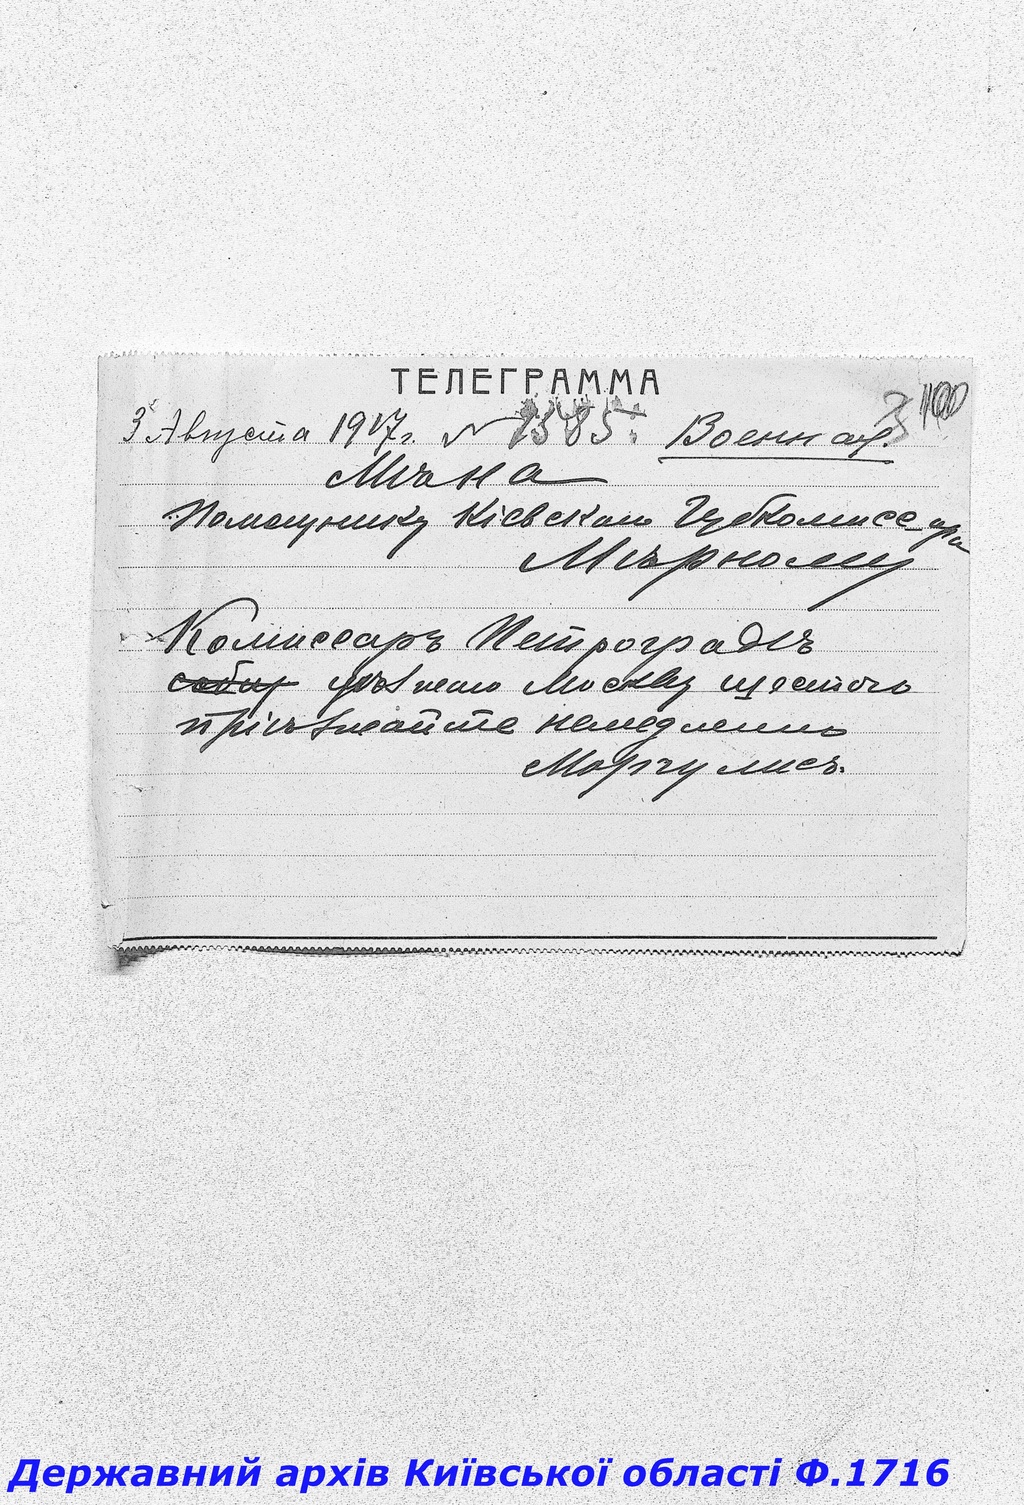 ТЕЛЕГРАММА
3 Августа 1917г. № 1585. Военная.
Мѣна
Помощнику Кіевскаго Губкомиссара
Мѣрному
Комиссаръ Петроградѣ
уѣзжаю Москву шестого
пріѣзжайте немедленно
Моргулисъ.
Державний архів Київської області Ф.1716